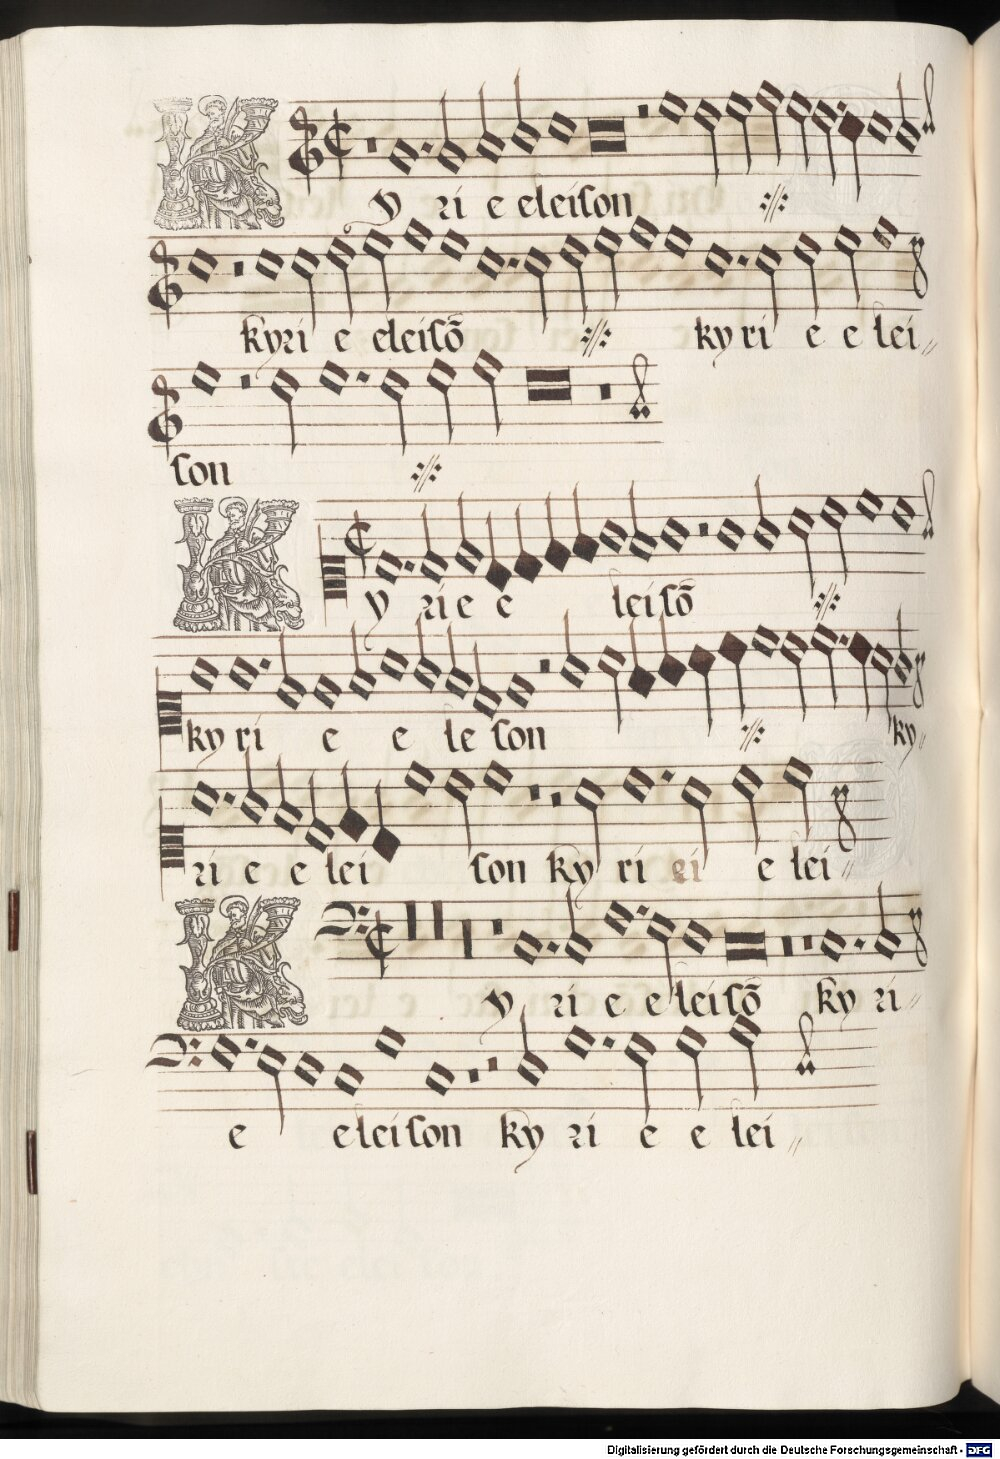 Kyri e eleison
kyri e eleisō kyri e e lei
son
Kyrie e leisō
kyri e e le son ky
ri e e lei son ky ri ei e lei
Kyri e e leisō ky ri
e eleison ky ri e e lei
Digitalisierung gefördert durch die Deutsche Forschungsgemeinschaft - DFG